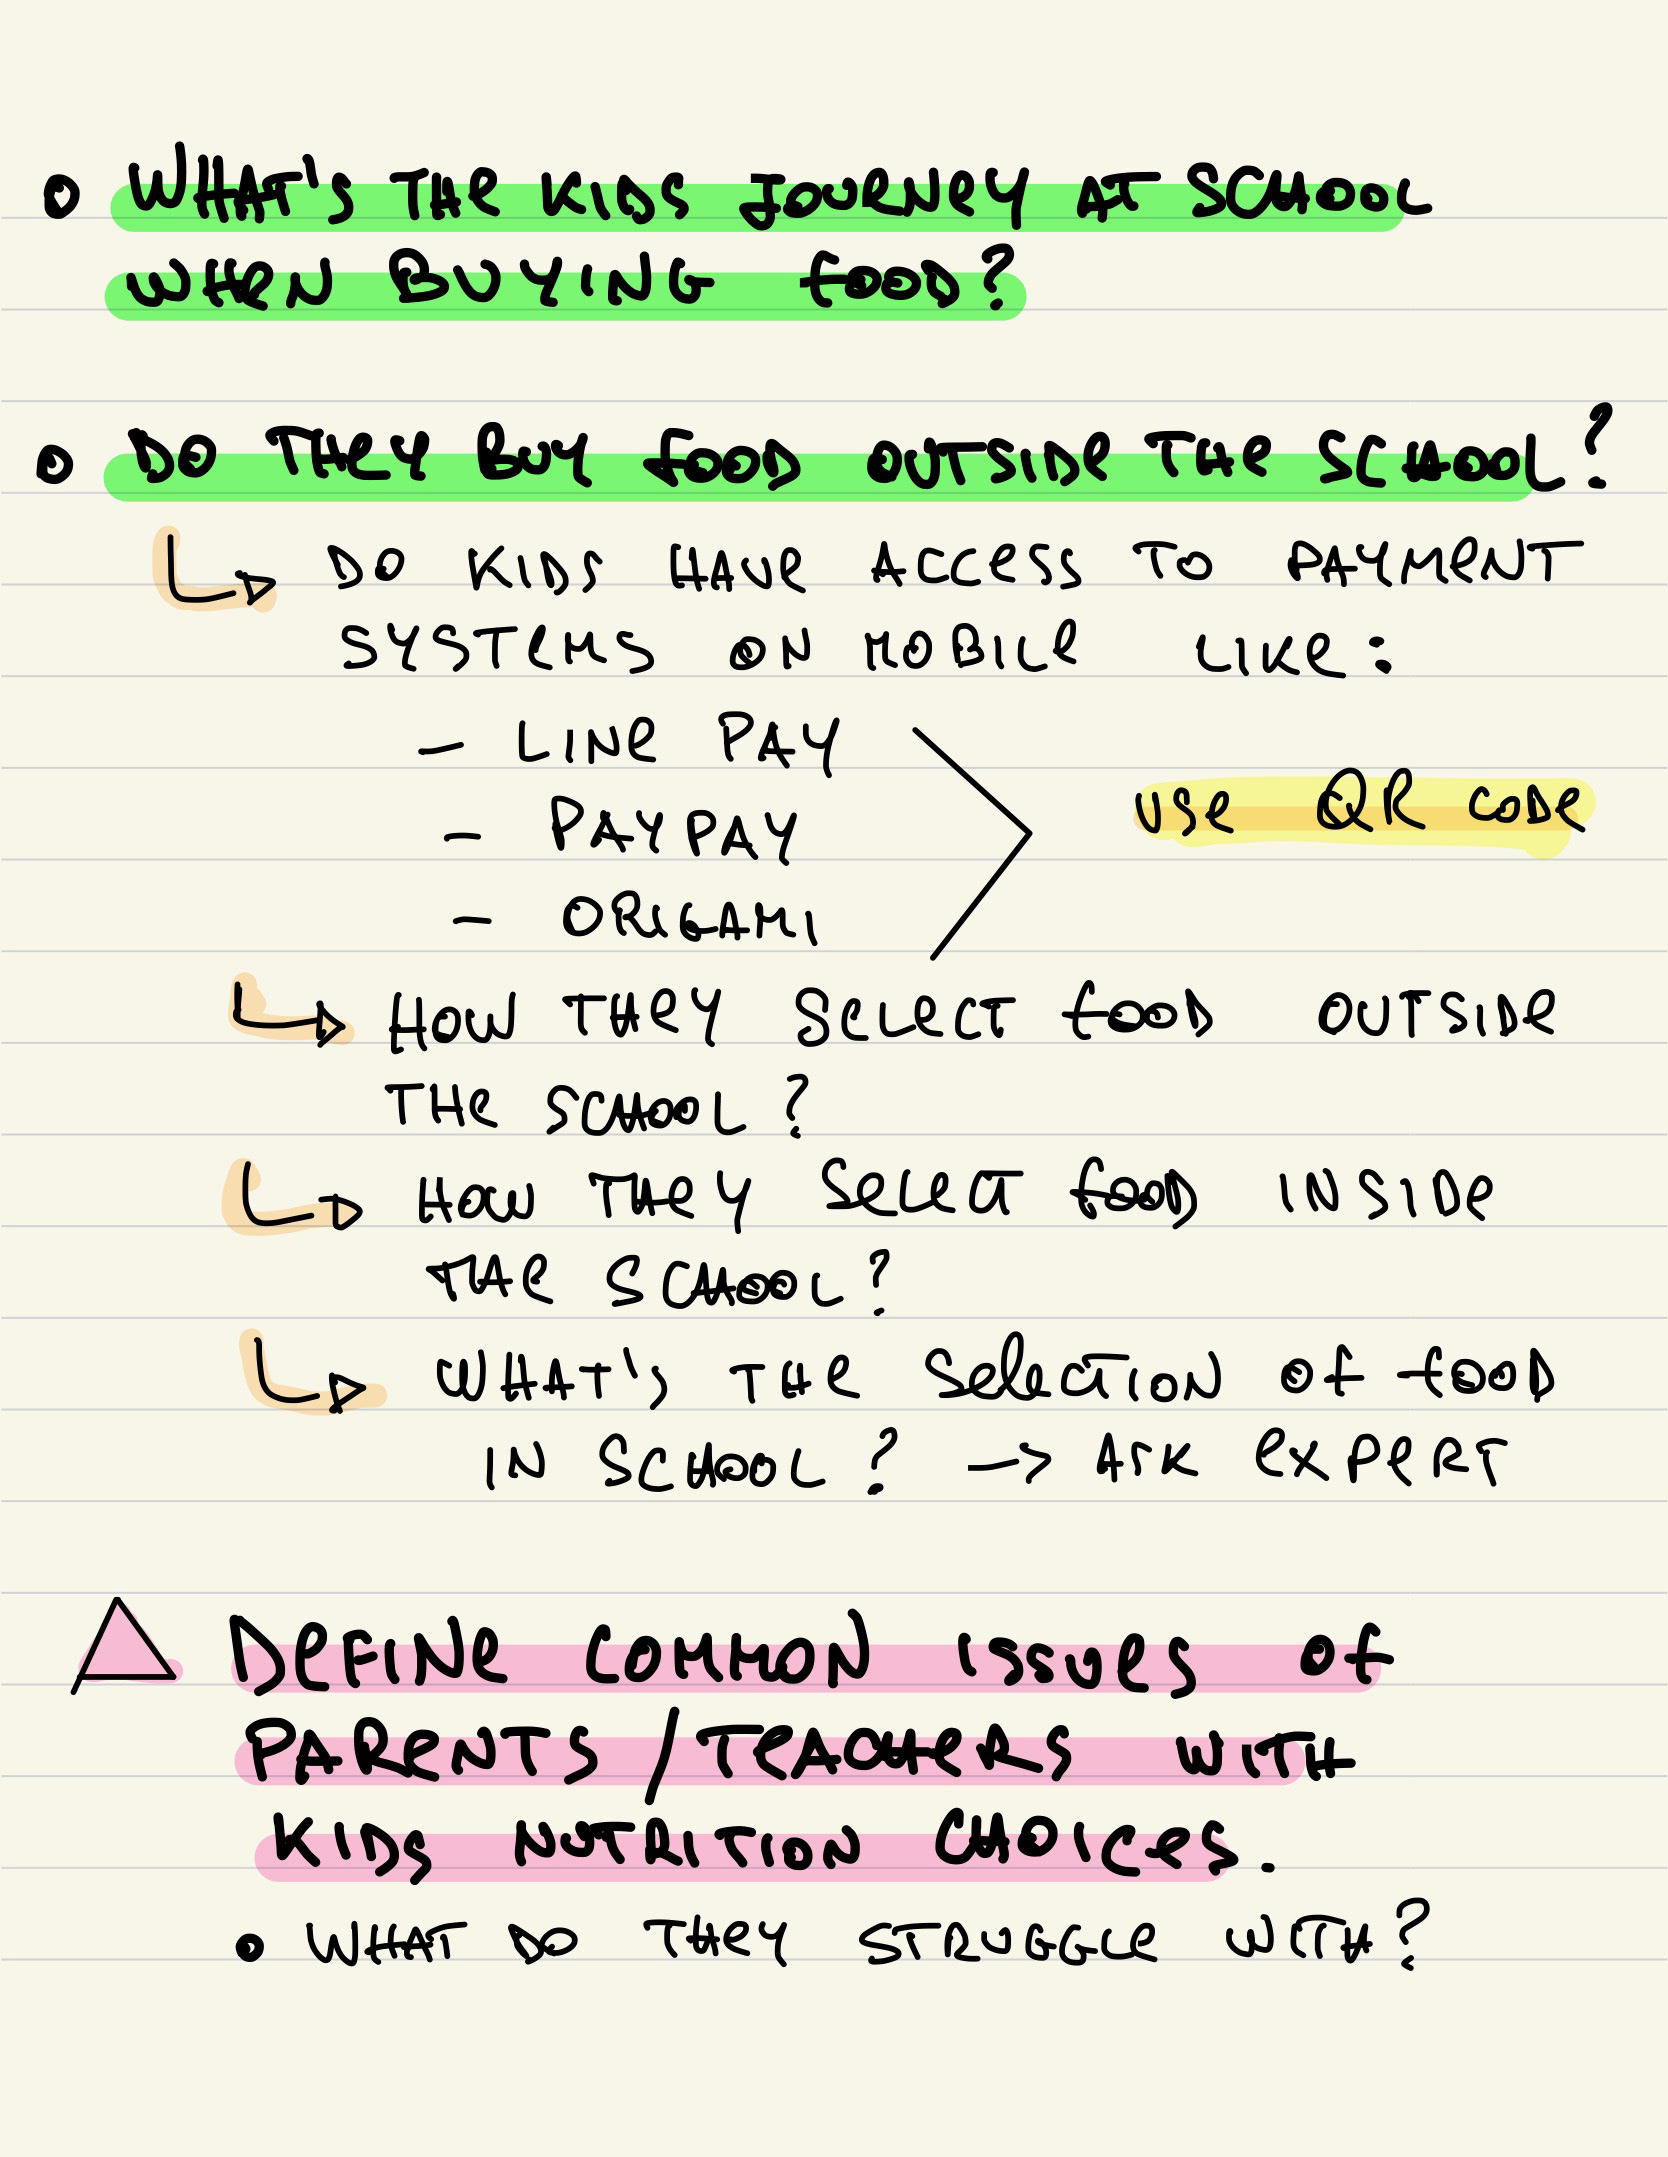 WHAT'S THE KIDS JOURNEY AT SCHOOL
WHEN BUYING FOOD?
DO THEY BUY FOOD OUTSIDE THE SCHOOL?
DO KIDS HAVE ACCESS TO PAYMENT
SYSTEMS ON MOBILE LIKE:
- LINE PAY
USE QR CODE
- PAYPAY
- ORIGAMI
HOW THEY SELECT FOOD OUTSIDE
THE SCHOOL?
HOW THEY SELECT FOOD INSIDE
THE SCHOOL?
WHAT'S THE SELECTION OF FOOD
IN SCHOOL? -> ASK EXPERT
DEFINE COMMON ISSUES OF
PARENTS/TEACHERS WITH
KIDS NUTRITION CHOICES.
• WHAT DO THEY STRUGGLE WITH?